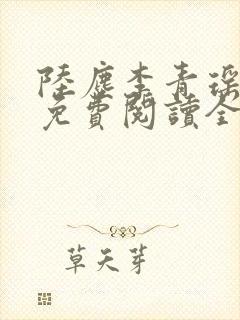 陸塵李青瑶
免費閱讀全
草天芽